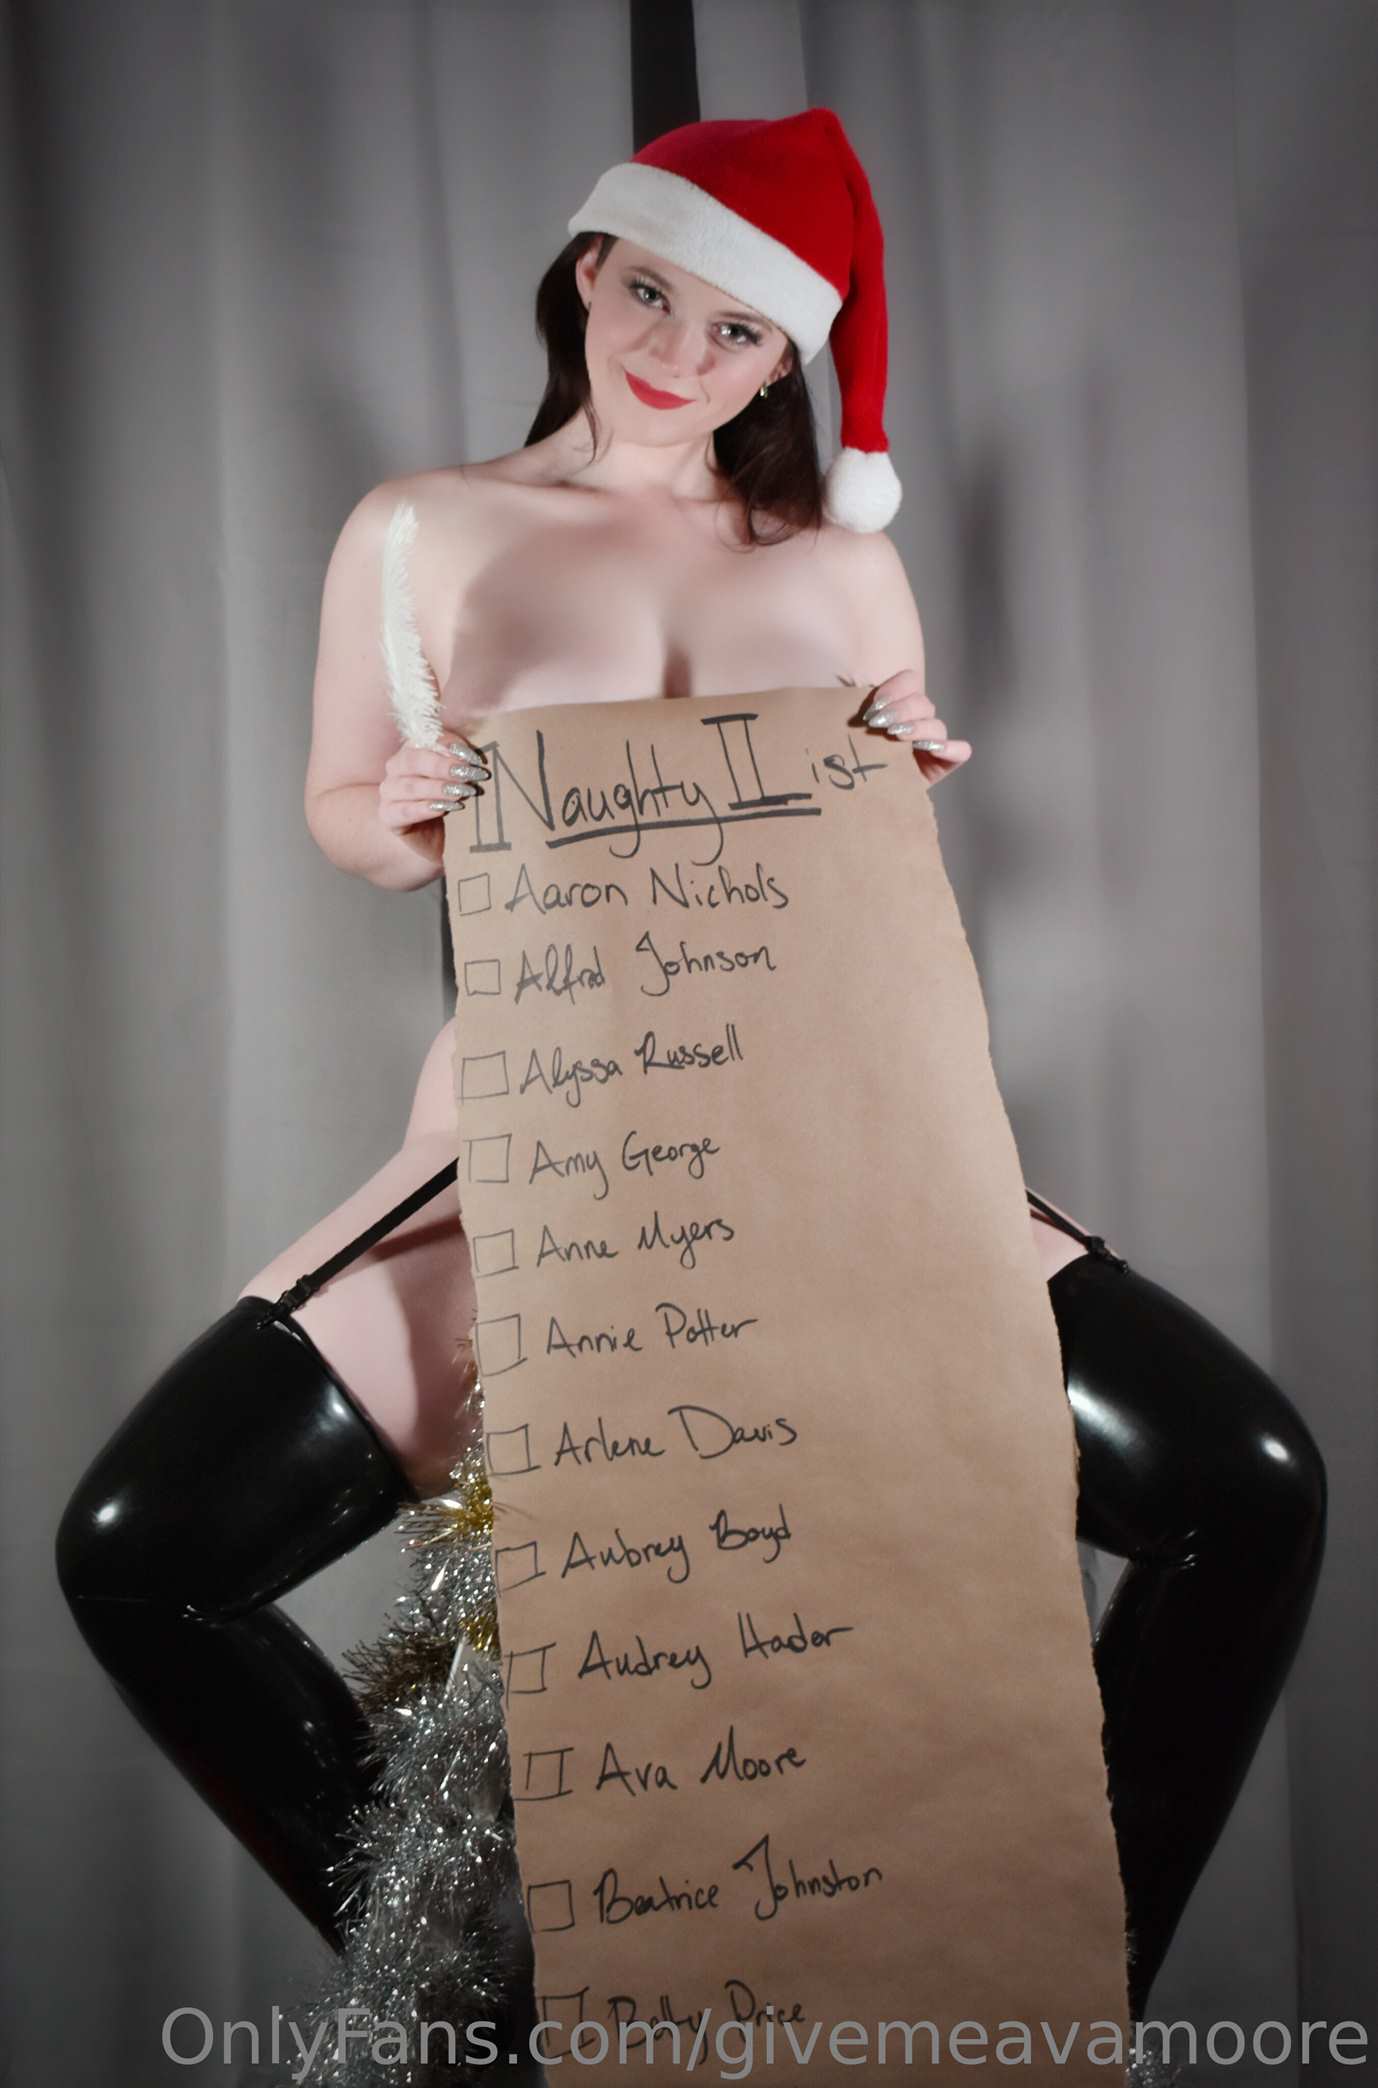 Naughty List
Aaron Nichols
Alfred Johnson
Alyssa Russell
Amy George
Anne Myers
Annie Potter
Arlene Davis
Aubrey Boyd
Audrey Hador
Ava Moore
Beatrice Johnston
Betty Price
OnlyFans.com/givemeavamoore